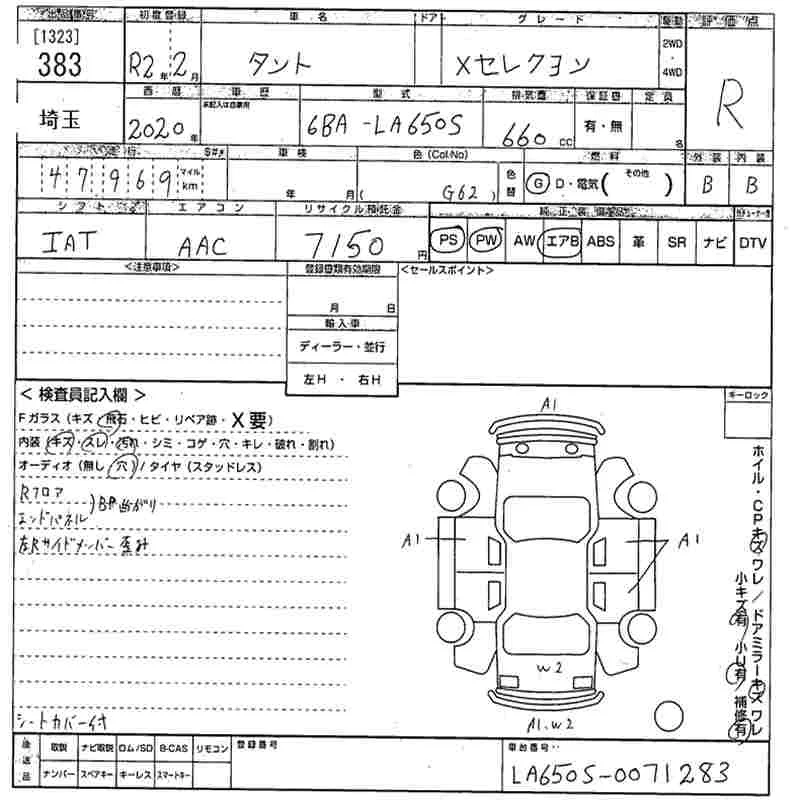 出品番号 初度登録 車名 ドア グレード 駆動 評価点
[1323]
383 R2年 2月 タント Xセレクション 2WD・4WD R
埼玉 西暦 車歴 型式 排気量 保証書 定員
2020年 未記入は自家用 6BA-LA650S 660cc 有・無 名
走行 車検 色(Col·No) 燃料 外装 内装
47969 マイル km 年 月 ( G62 ) 色替 G D・電気( その他 ) B B
シフト エアコン リサイクル預託金 純正装備品
IAT AAC 7150円 PS PW AW エアB ABS 革 SR ナビ DTV
<注意事項> 登録書類有効期限 <セールスポイント>
月 日
輸入車
ディーラー・並行
左H ・ 右H
<検査員記入欄> キーロック
Fガラス(キズ・飛石・ヒビ・リペア跡・X要)
内装(キズ・スレ・汚れ・シミ・コゲ・穴・キレ・破れ・割れ)
オーディオ(無し・穴)/タイヤ(スタッドレス)
Rフロア
エンドパネル )BP曲がり
左Rサイドメンバー歪み
A1
A1 A1
W2
A1.W2
ホイル・CPキズワレ/ドアミラーキズワレ
小キズ有/小U有/補修有
シートカバー付
後送品 取説 ナビ取説 ロム/SD B-CAS リモコン 登録番号 車台番号
ナンバー スペアキー キーレス スマートキー LA650S-0071283